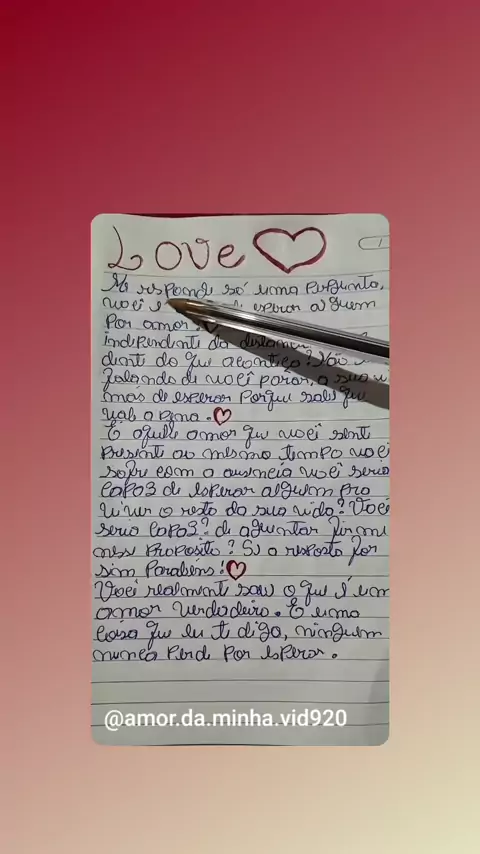 Love
Me responde só uma pergunta,
você é esperar alguem
Por amor?
independente da distanc
dente do que aconteça? Não
falando de você parar, a sua v
mas de esperar Porque sabe que
vale a pena.
É aquele amor que você sente
presente ao mesmo tempo você
sofre com a ausência você seria
capaz de esperar alguém pro
viver o resto da sua vida? Você
seria capaz? de aguentar firme
nesse Proposito? Se a resposta for
sim Parabéns!
Você realmente sabe o que é um
amor verdadeiro. E uma
coisa que eu te digo, ninguem
nunca Perde Por esperar.
@amor.da.minha.vid920